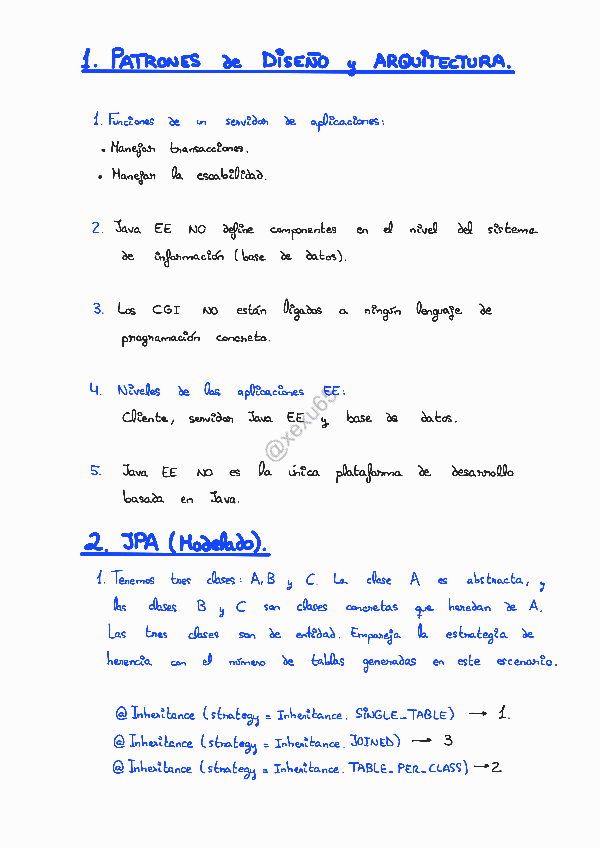 1. PATRONES de DISEÑO y ARQUITECTURA.
1. Funciones de un servidor de aplicaciones:
• Manejar transacciones.
• Manejar la escabilidad.
2. Java EE NO define componentes en el nivel del sistema
de información (base de datos).
3. Los CGI NO están ligados a ningún lenguaje de
programación concreto.
4. Niveles de las aplicaciones EE:
Cliente, servidor Java EE y base de datos.
@xexu65
5. Java EE NO es la única plataforma de desarrollo
basada en Java.
2. JPA (Modelado).
1. Tenemos tres clases: A, B y C. La clase A es abstracta, y
las clases B y C son clases concretas que heredan de A.
Las tres clases son de entidad. Empareja la estrategia de
herencia con el número de tablas generadas en este escenario.
@Inheritance (strategy = Inheritance. SINGLE_TABLE) → 1.
@Inheritance (strategy = Inheritance. JOINED) → 3
@Inheritance (strategy = Inheritance. TABLE_PER_CLASS) → 2